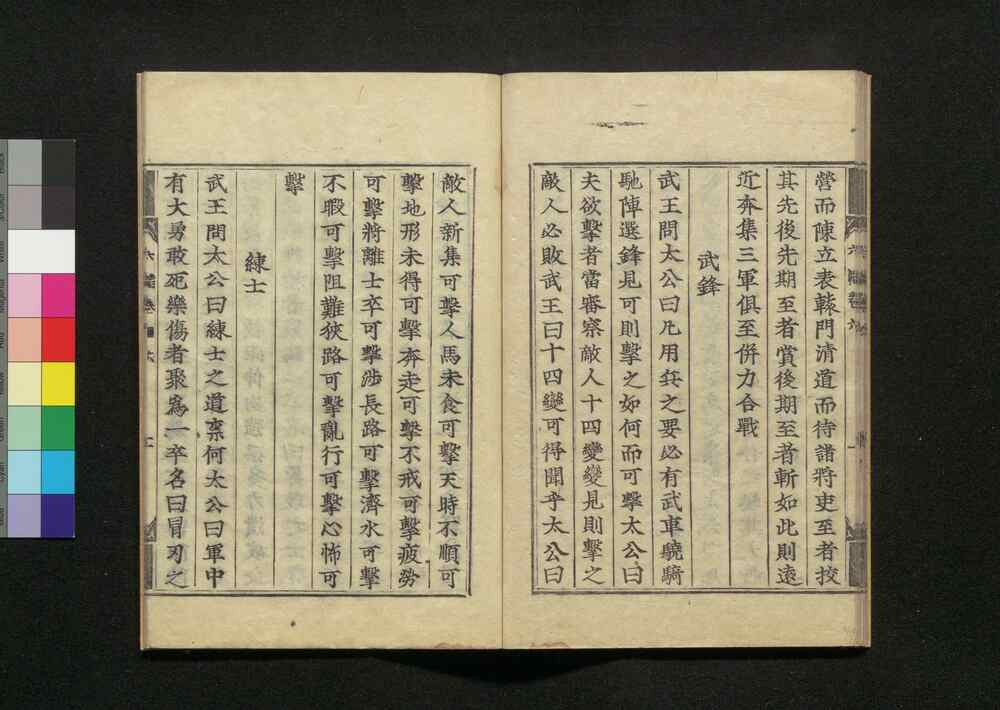 營而陳立表轅門清道而待諸將吏至者挍
其先後先期至者賞後期至者斬如此則遠
近奔集三軍俱至併力合戰
武鋒
武王問太公曰凡用兵之要必有武車驍騎
馳陣選鋒見可則擊之如何而可擊太公曰
夫欲擊者當審察敵人十四變變見則擊之
敵人必敗武王曰十四變可得聞乎太公曰
敵人新集可擊人馬未食可擊天時不順可
擊地形未得可擊奔走可擊不戒可擊疲勞
可擊將離士卒可擊涉長路可擊濟水可擊
不暇可擊阻難狹路可擊亂行可擊心怖可
擊
練士
武王問太公曰練士之道柰何太公曰軍中
有大勇敢死樂傷者聚爲一卒名曰冒刃之